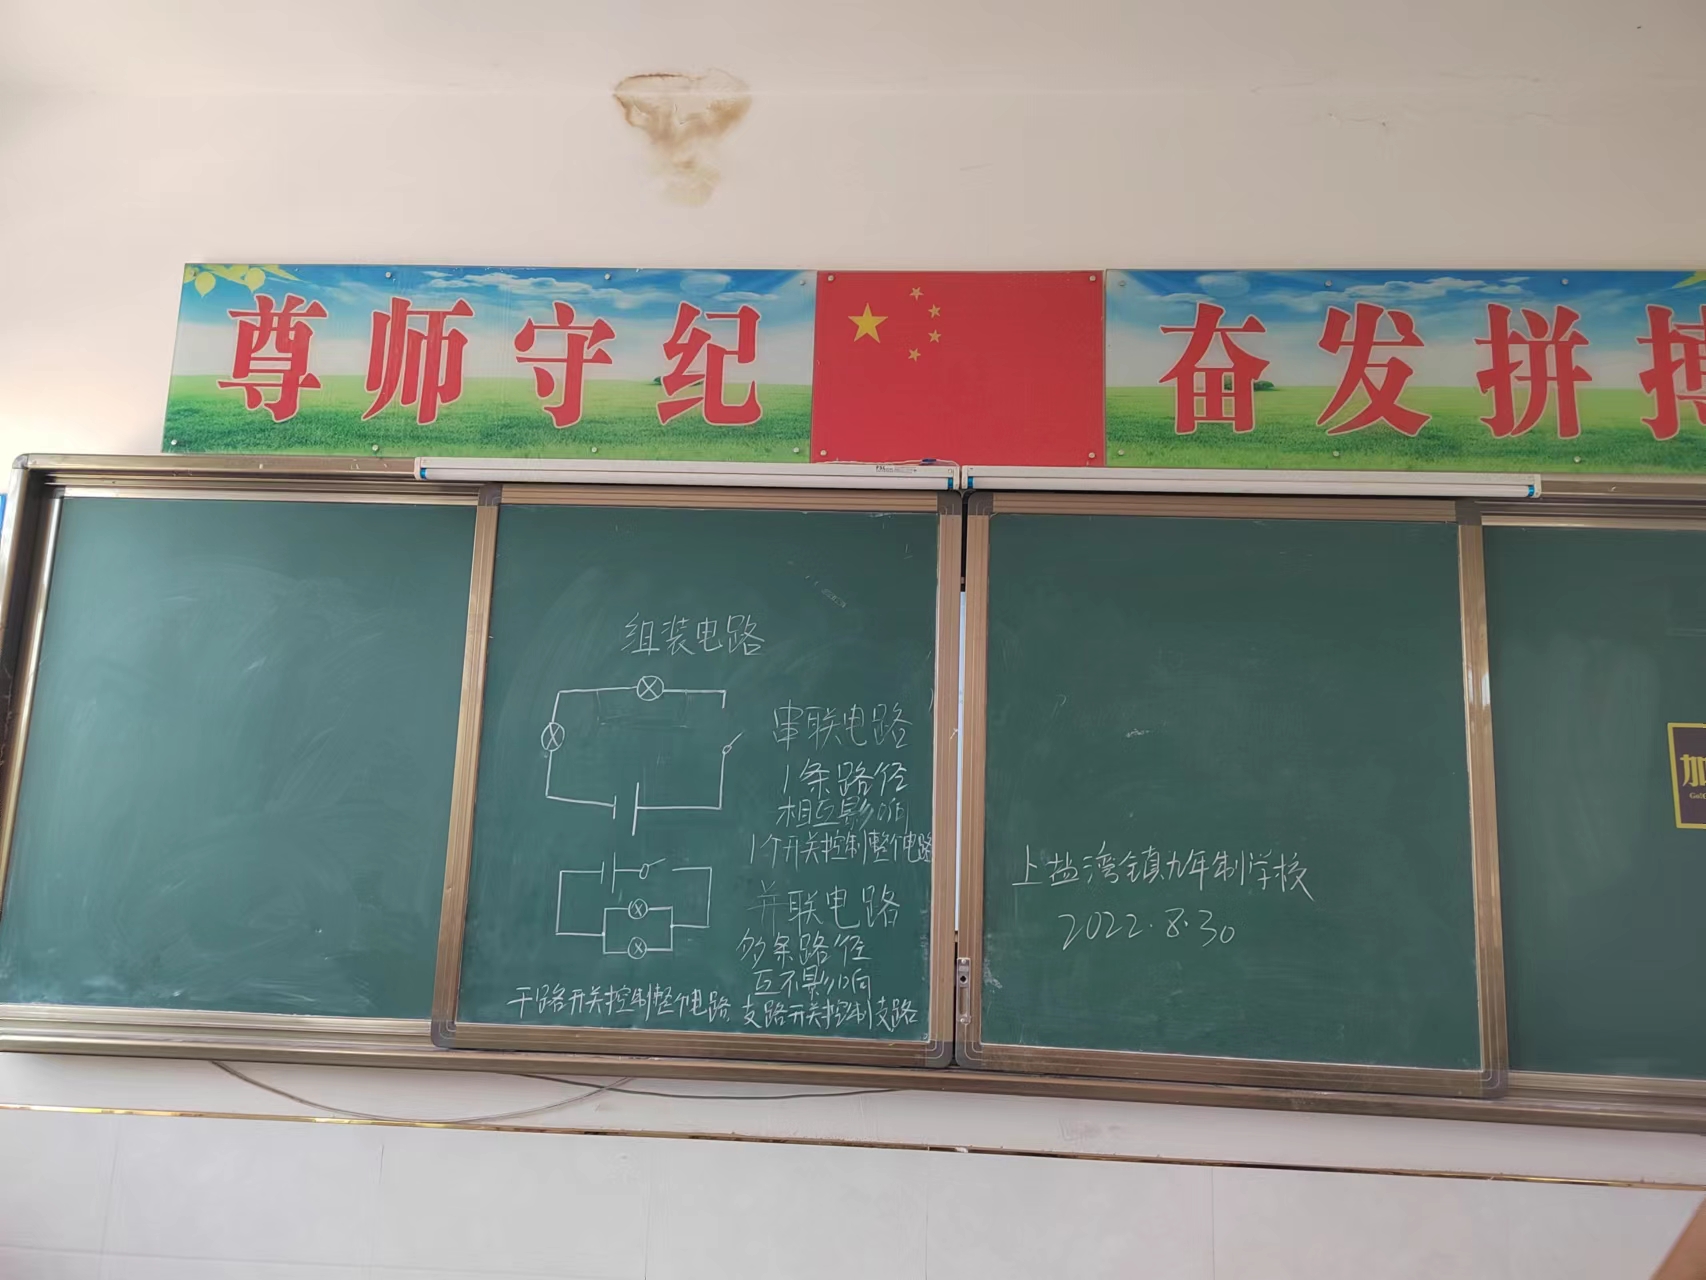 尊师守纪
奋发拼搏
组装电路
串联电路
1条路径
相互影响
1个开关控制整个电路
并联电路
多条路径
互不影响
干路开关控制整个电路、支路开关控制支路
上盐湾镇九年制学校
2022.8.30
加